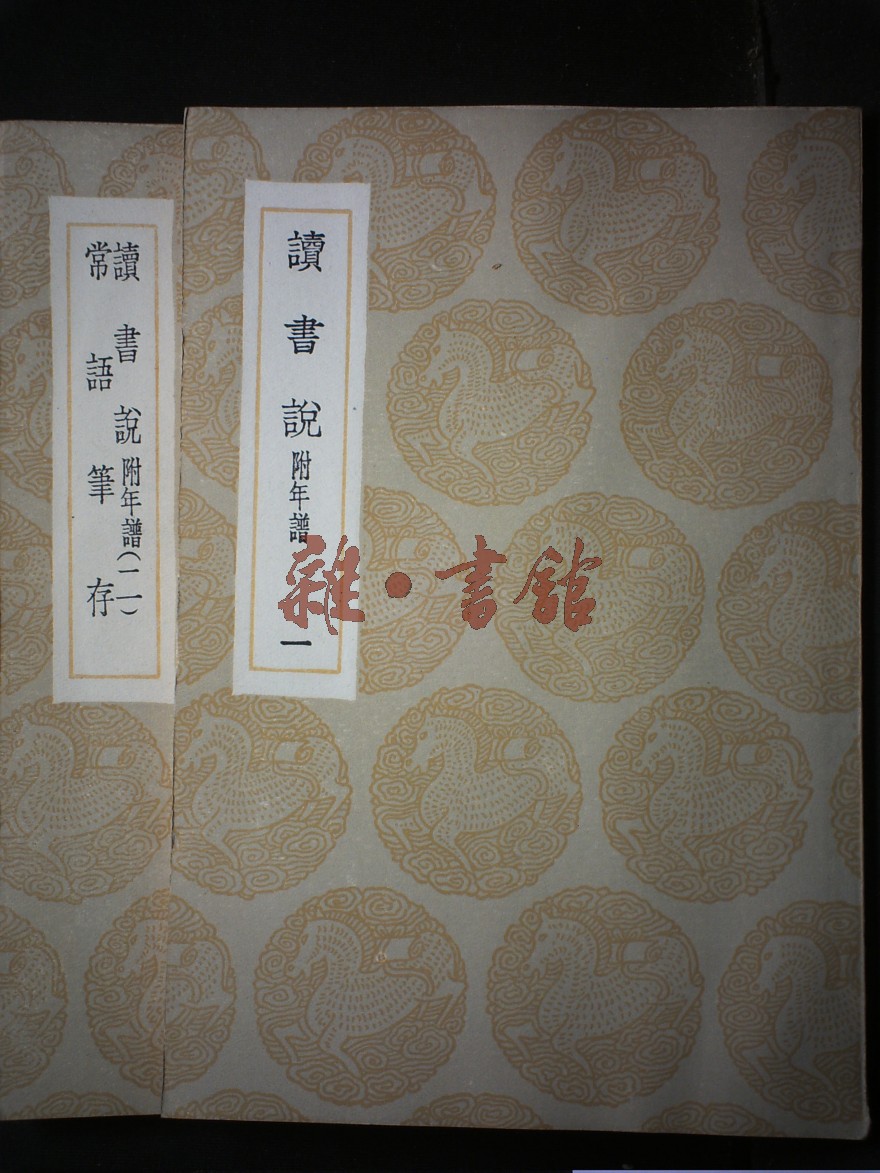 讀書說附年譜 一
讀書說附年譜(二)
常語筆存
雜·書館